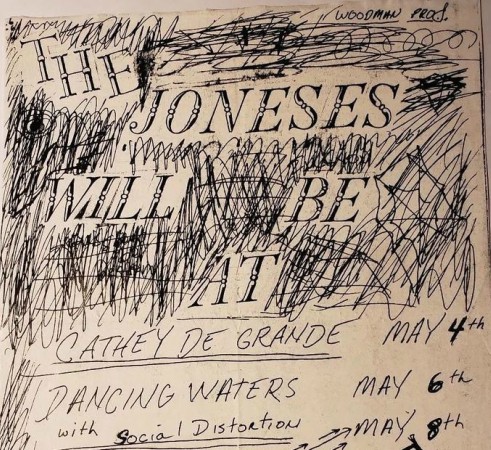 WOODMAN PROD.
THE
JONESES
WILL BE
AT
CATHEY DE GRANDE MAY 4th
DANCING WATERS MAY 6th
with Social Distortion MAY 8th